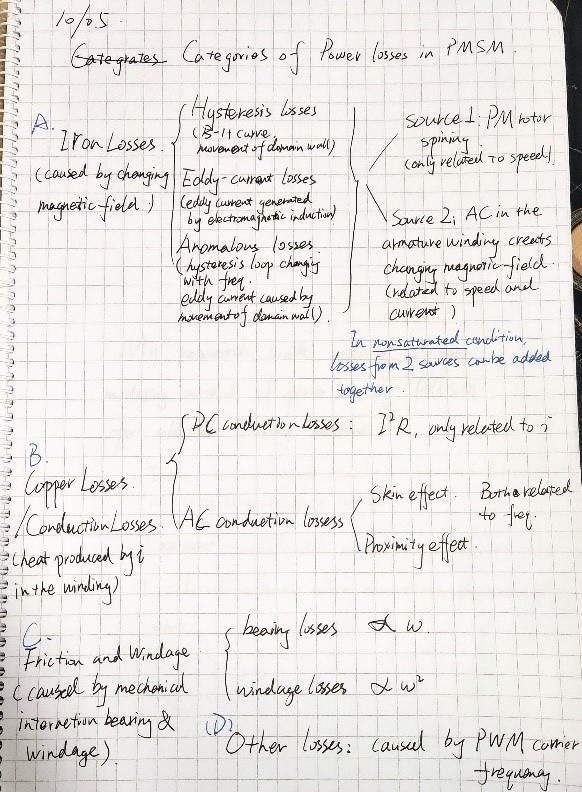 10/05
Categrates Categories of Power losses in PMSM.
A.
Iron Losses.
(caused by changing
magnetic field)
Hysteresis losses
(B-H curve,
movement of domain wall)
Eddy-current losses
(eddy current generated
by electromagnetic induction)
Anomalous losses
(hysteresis loop changing
with freq.
eddy current caused by
movement of domain wall).
Source 1: PM rotor
spining
(only related to speed).
Source 2: AC in the
armature winding creats
changing magnetic field.
(related to speed and
current)
In nonsaturated condition,
losses from 2 sources can be added
together.
B.
Copper Losses.
/Conduction Losses.
(heat produced by i
in the winding)
DC conduction Losses: I²R, only related to i
AC conduction lossess
Skin effect. Both related
to freq.
Proximity effect.
C.
Friction and Windage
(caused by mechanical
internetion bearing &
windage).
bearing losses ∝ ω.
windage losses ∝ ω²
(D)
Other losses: caused by PWM carrier
frequency.